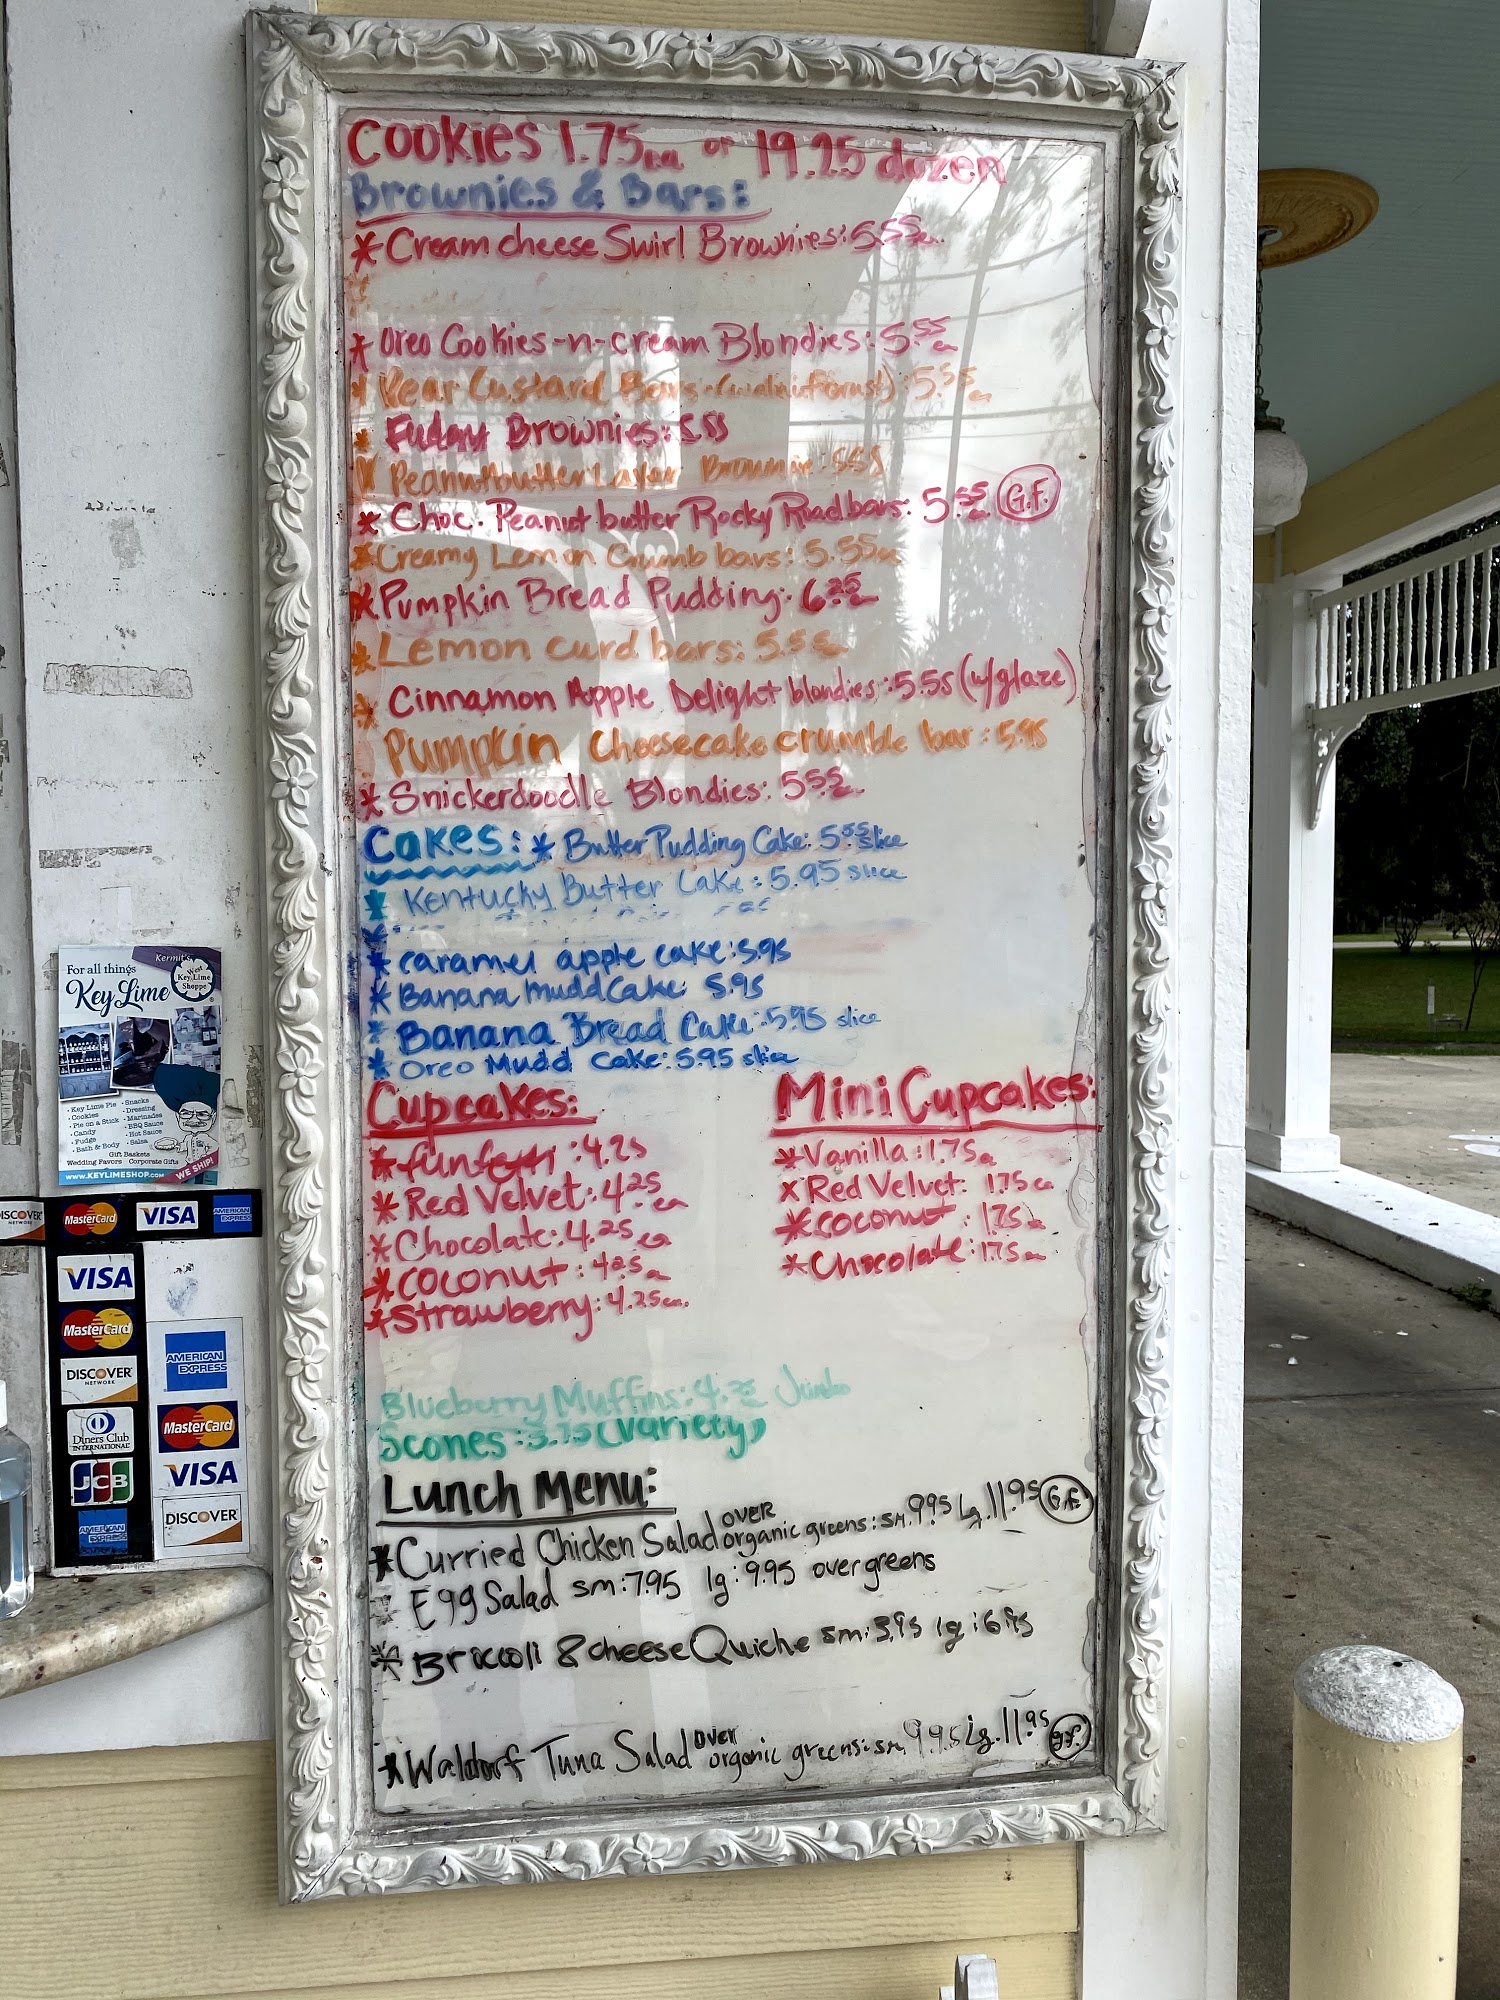 Cookies 1.75 ea or 19.25 dozen
Brownies & Bars:
* Cream cheese Swirl Brownies: 5.55 ea.
* Oreo Cookies-n-cream Blondies: 5.55 ea
* Pear Custard Bars (walnut crust): 5.55 ea
* Fudgy Brownies: 5.55
* Peanutbutter Layer Brownie: 5.55
* Choc. Peanut butter Rocky Road bars: 5.55 ea G.F.
* Creamy Lemon Crumb bars: 5.55 ea
* Pumpkin Bread Pudding: 6.25 ea
* Lemon curd bars: 5.55 ea
* Cinnamon Apple Delight blondies: 5.55 (w/glaze)
Pumpkin Cheesecake crumble bar: 5.95
* Snickerdoodle Blondies: 5.55 ea.
Cakes: * Butter Pudding Cake: 5.55 slice
* Kentucky Butter Cake: 5.95 slice
* caramel apple cake: 5.95
* Banana mudd Cake: 5.95
* Banana Bread Cake: 5.95 slice
* Oreo Mudd Cake: 5.95 slice
Cupcakes:
* funfetti: 4.25
* Red Velvet: 4.25 ea
* Chocolate: 4.25 ea
* coconut: 4.25 ea
* Strawberry: 4.25 ea.
Mini Cupcakes:
* Vanilla: 1.75 ea
* Red Velvet: 1.75 ea
* coconut: 1.75 ea
* Chocolate: 1.75 ea
Blueberry Muffins: 4.25 ea Jumbo
Scones: 3.75 (variety)
Lunch Menu:
* Curried Chicken Salad over organic greens: sm. 9.95 Lg. 11.95 G.F.
Egg Salad sm: 7.95 lg: 9.95 over greens
* Broccoli & cheese Quiche sm: 3.95 lg: 6.95
* Waldorf Tuna Salad over organic greens: sm. 9.95 Lg. 11.95 g.f.
Kermit's
West
Key Lime
Shoppe
For all things
Key Lime
• Key Lime Pie
• Cookies
• Pie on a Stick
• Candy
• Fudge
• Bath & Body
• Snacks
• Dressing
• Marinades
• BBQ Sauce
• Hot Sauce
• Salsa
Gift Baskets
Wedding Favors Corporate Gifts
www.KEYLIMESHOP.com
WE SHIP!
DISCOVER NETWORK
MasterCard
VISA
AMERICAN EXPRESS
VISA
MasterCard
DISCOVER NETWORK
Diners Club INTERNATIONAL
JCB
AMERICAN EXPRESS
AMERICAN EXPRESS
MasterCard
VISA
DISCOVER NETWORK